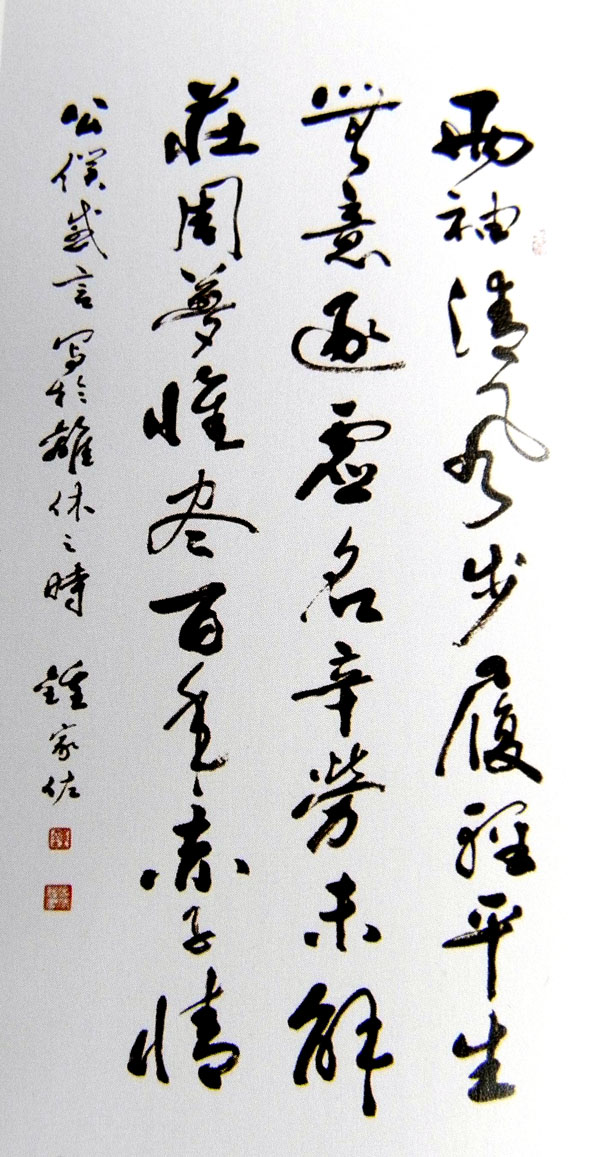 兩袖清風步履輕平生
無意逐虛名辛勞未解
莊周夢惟盡百年赤子情
公僕感言 寫於離休之時 鍾家佐